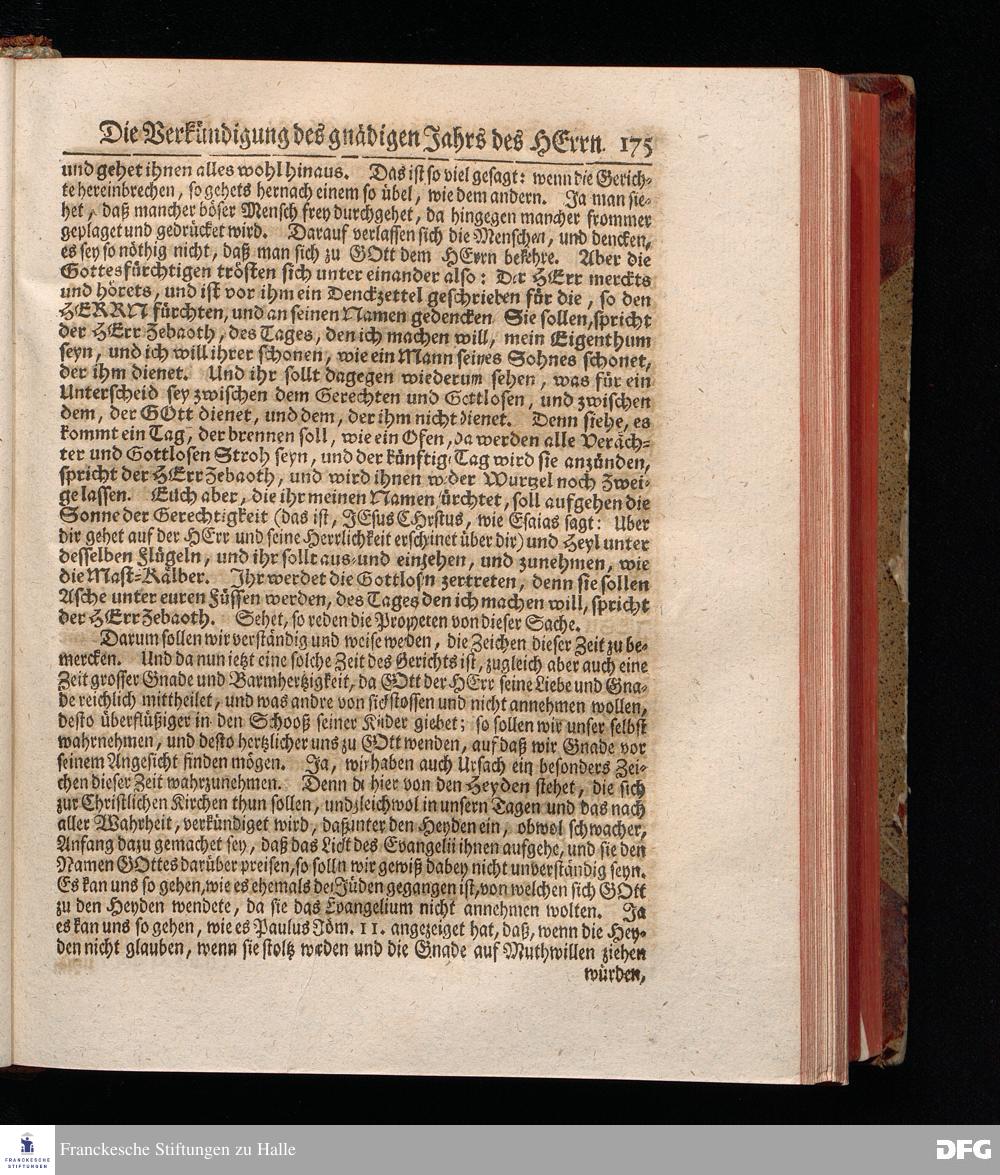 Die Verkündigung des gnädigen Jahrs des HErrn. 175
und gehet ihnen alles wohl hinaus. Das ist so viel gesagt: wenn die Gerich-
te hereinbrechen, so gehets hernach einem so übel, wie dem andern. Ja man sie-
het, daß mancher böser Mensch frey durchgehet, da hingegen mancher frommer
geplaget und gedrücket wird. Darauf verlassen sich die Menschen, und dencken,
es sey so nöthig nicht, daß man sich zu GOtt dem HErrn bekehre. Aber die
Gottesfürchtigen trösten sich unter einander also: Der HErr merckts
und hörets, und ist vor ihm ein Denckzettel geschrieben für die, so den
HERRN fürchten, und an seinen Namen gedencken. Sie sollen, spricht
der HErr Zebaoth, des Tages, den ich machen will, mein Eigenthum
seyn, und ich will ihrer schonen, wie ein Mann seines Sohnes schonet,
der ihm dienet. Und ihr sollt dagegen wiederum sehen, was für ein
Unterscheid sey zwischen dem Gerechten und Gottlosen, und zwischen
dem, der GOtt dienet, und dem, der ihm nicht dienet. Denn siehe, es
kommt ein Tag, der brennen soll, wie ein Ofen, da werden alle Veräch-
ter und Gottlosen Stroh seyn, und der künftige Tag wird sie anzünden,
spricht der HErr Zebaoth, und wird ihnen weder Wurtzel noch Zwei-
ge lassen. Euch aber, die ihr meinen Namen fürchtet, soll aufgehen die
Sonne der Gerechtigkeit (das ist, JEsus CHrstus, wie Esaias sagt: Uber
dir gehet auf der HErr und seine Herrlichkeit erscheinet über dir) und Heyl unter
desselben Flügeln, und ihr sollt aus-und einziehen, und zunehmen, wie
die Mast-Kälber. Ihr werdet die Gottlosen zertreten, denn sie sollen
Asche unter euren Füssen werden, des Tages den ich machen will, spricht
der HErr Zebaoth. Sehet, so reden die Propheten von dieser Sache.
Darum sollen wir verständig und weise werden, die Zeichen dieser Zeit zu be-
mercken. Und da nun jetzt eine solche Zeit des Gerichts ist, zugleich aber auch eine
Zeit grosser Gnade und Barmhertzigkeit, da GOtt der HErr seine Liebe und Gna-
de reichlich mittheilet, und was andre von sich stossen und nicht annehmen wollen,
desto überflüßiger in den Schooß seiner Kinder giebet; so sollen wir unser selbst
wahrnehmen, und desto hertzlicher uns zu GOtt wenden, auf daß wir Gnade vor
seinem Angesicht finden mögen. Ja, wir haben auch Ursach ein besonders Zei-
chen dieser Zeit wahrzunehmen. Denn da hier von den Heyden stehet, die sich
zur Christlichen Kirchen thun sollen, und gleichwol in unsern Tagen und das nach
aller Wahrheit, verkündiget wird, daß unter den Heyden ein, obwol schwacher,
Anfang dazu gemachet sey, daß das Licht des Evangelii ihnen aufgehe, und sie den
Namen GOttes darüber preisen, so sollen wir gewiß dabey nicht unverständig seyn.
Es kan uns so gehen, wie es ehemals den Jüden gegangen ist, von welchen sich GOtt
zu den Heyden wendete, da sie das Evangelium nicht annehmen wolten. Ja
es kan uns so gehen, wie es Paulus Röm. 11. angezeiget hat, daß, wenn die Hey-
den nicht glauben, wenn sie stoltz werden und die Gnade auf Muthwillen ziehen
würden,
FRANCKESCHE
STIFTUNGEN
Franckesche Stiftungen zu Halle
DFG